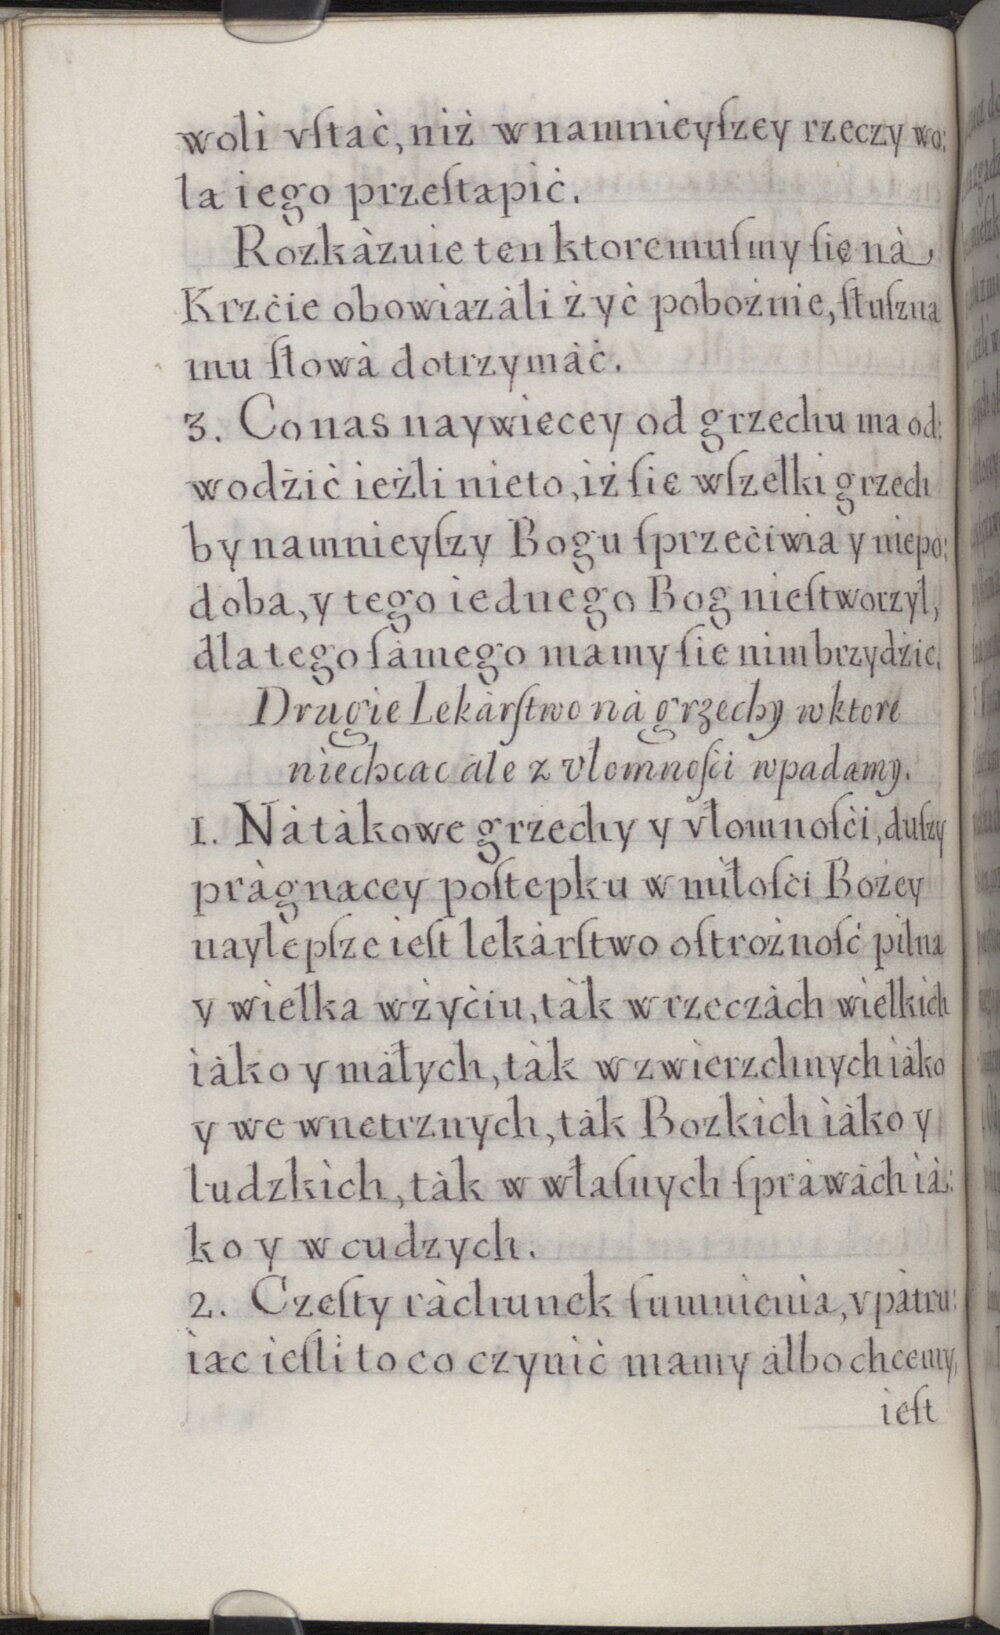 woli vſtać, niż w namnieyſzey rzeczy wo:
la iego przeſtapić.
Rozkàzuie ten ktoremuſmy ſię nà
Krzćie obowiazàli żyć pobożnie, ſłuſzna
mu ſłowà dotrzymàć.
3. Co nas naywięcey od grzechu ma od:
wodźić ieżli nie to, iż ſię wſzelki grzech
by namnieyſzy Bogu ſprzećiwia y niepo:
doba, y tego iednego Bog nieſtworzył,
dla tego ſàmego mamy ſię nim brzydźić.
Drugie Lekàrſtwo nà grzechy w ktore
niechcąc àle z vłomnośći wpadamy.
1. Nà tàkowe grzechy y vłomnośći, duſzy
pràgnącey poſtępku w miłośći Bożey
naylepſze ieſt lekàrſtwo oſtrożność pilna
y wielka w żyćiu, tàk w rzeczàch wielkich
iàko y màłych, tàk w zwierzchnych iàko
y we wnętrznych, tàk Bozkich iàko y
ludzkich, tàk w właſnych ſpràwàch ià:
ko y w cudzych.
2. Częſty ràchunek ſumnienia, vpàtru:
iąc ieſli to co czynić mamy àlbo chcemy,
ieſt